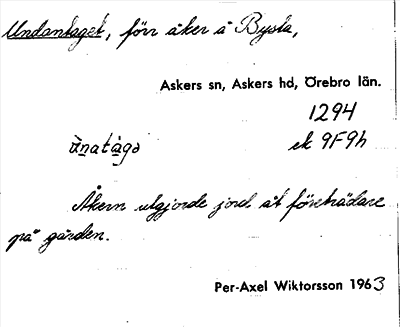 Undantaget, förr åker å Bysta,
Askers sn, Askers hd, Örebro län.
1294
ek 9F9h
ùnatàgə
Åkern utgjorde jord åt företrädare
på gården.
Per-Axel Wiktorsson 1963